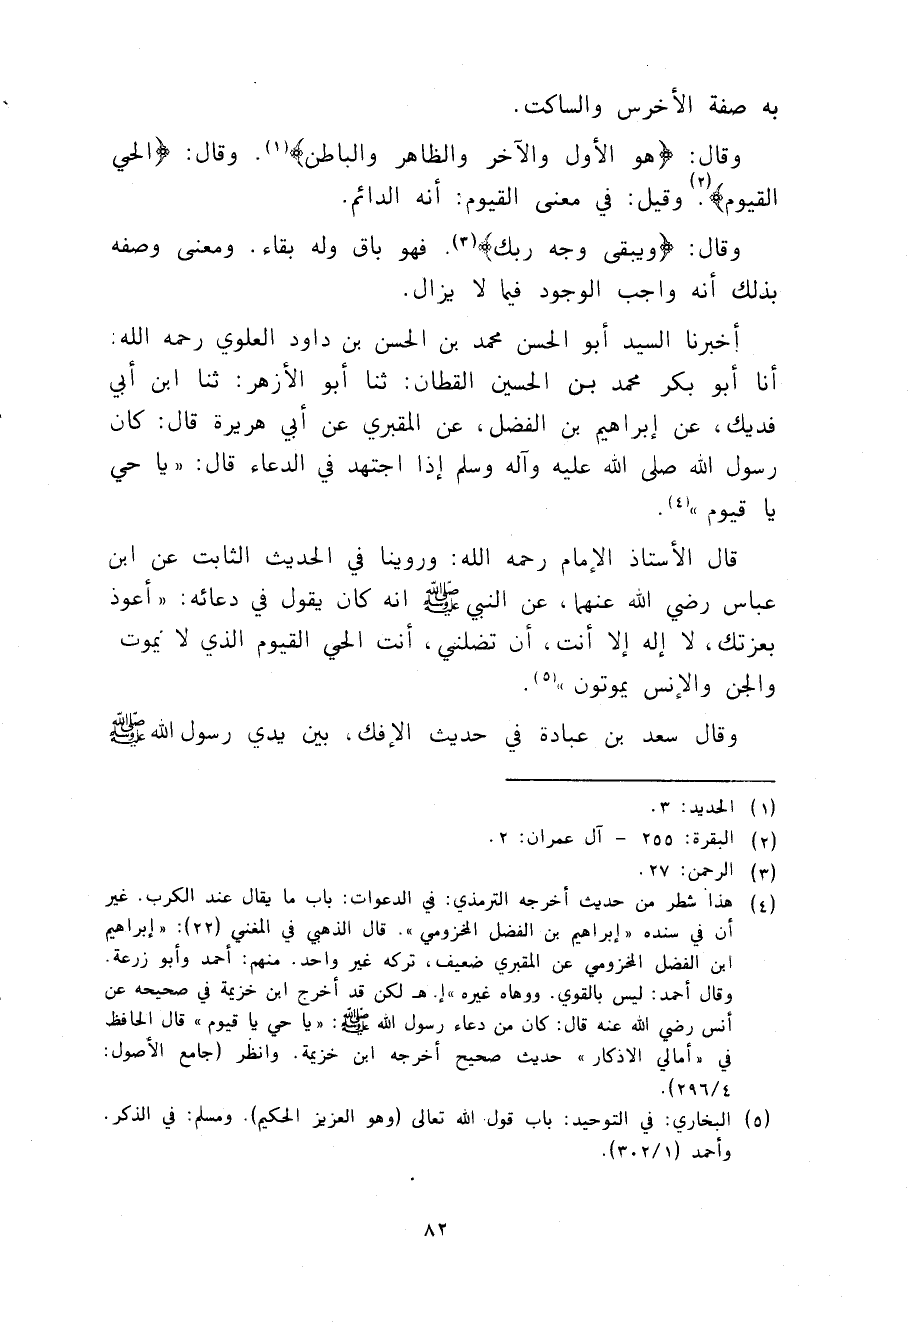 به صفة الأخرس والساكت.
وقال: ﴿هو الأول والآخر والظاهر والباطن﴾(١). وقال: ﴿الحي
القيوم﴾(٢). وقيل: في معنى القيوم: أنه الدائم.
وقال: ﴿ويبقى وجه ربك﴾(٣). فهو باق وله بقاء. ومعنى وصفه
بذلك أنه واجب الوجود فيما لا يزال.
أخبرنا السيد أبو الحسن محمد بن الحسن بن داود العلوي رحمه الله:
أنا أبو بكر محمد بن الحسين القطان: ثنا أبو الأزهر: ثنا ابن أبي
فديك، عن إبراهيم بن الفضل، عن المقبري عن أبي هريرة قال: كان
رسول الله صلى الله عليه وآله وسلم إذا اجتهد في الدعاء قال: «يا حي
يا قيوم»(٤).
قال الأستاذ الإمام رحمه الله: وروينا في الحديث الثابت عن ابن
عباس رضي الله عنهما، عن النبي ﷺ انه كان يقول في دعائه: «أعوذ
بعزتك، لا إله إلا أنت، أن تضلني، أنت الحي القيوم الذي لا يموت
والجن والإنس يموتون»(٥).
وقال سعد بن عبادة في حديث الإفك، بين يدي رسول الله ﷺ
(١) الحديد: ٣.
(٢) البقرة: ٢٥٥ – آل عمران: ٢.
(٣) الرحمن: ٢٧.
(٤) هذا شطر من حديث أخرجه الترمذي: في الدعوات: باب ما يقال عند الكرب. غير
أن في سنده «إبراهيم بن الفضل المخزومي». قال الذهبي في المغني (٢٢): «إبراهيم
ابن الفضل المخزومي عن المقبري ضعيف، تركه غير واحد. منهم: أحمد وأبو زرعة.
وقال أحمد: ليس بالقوي. ووهاه غيره» إ. هـ لكن قد أخرج ابن خزيمة في صحيحه عن
أنس رضي الله عنه قال: كان من دعاء رسول الله ﷺ: «يا حي يا قيوم» قال الحافظ
في «أمالي الاذكار» حديث صحيح أخرجه ابن خزيمة. وانظر (جامع الأصول:
٢٩٦/٤).
(٥) البخاري: في التوحيد: باب قول الله تعالى (وهو العزيز الحكيم). ومسلم: في الذكر.
وأحمد (٣٠٢/١).
٨٢